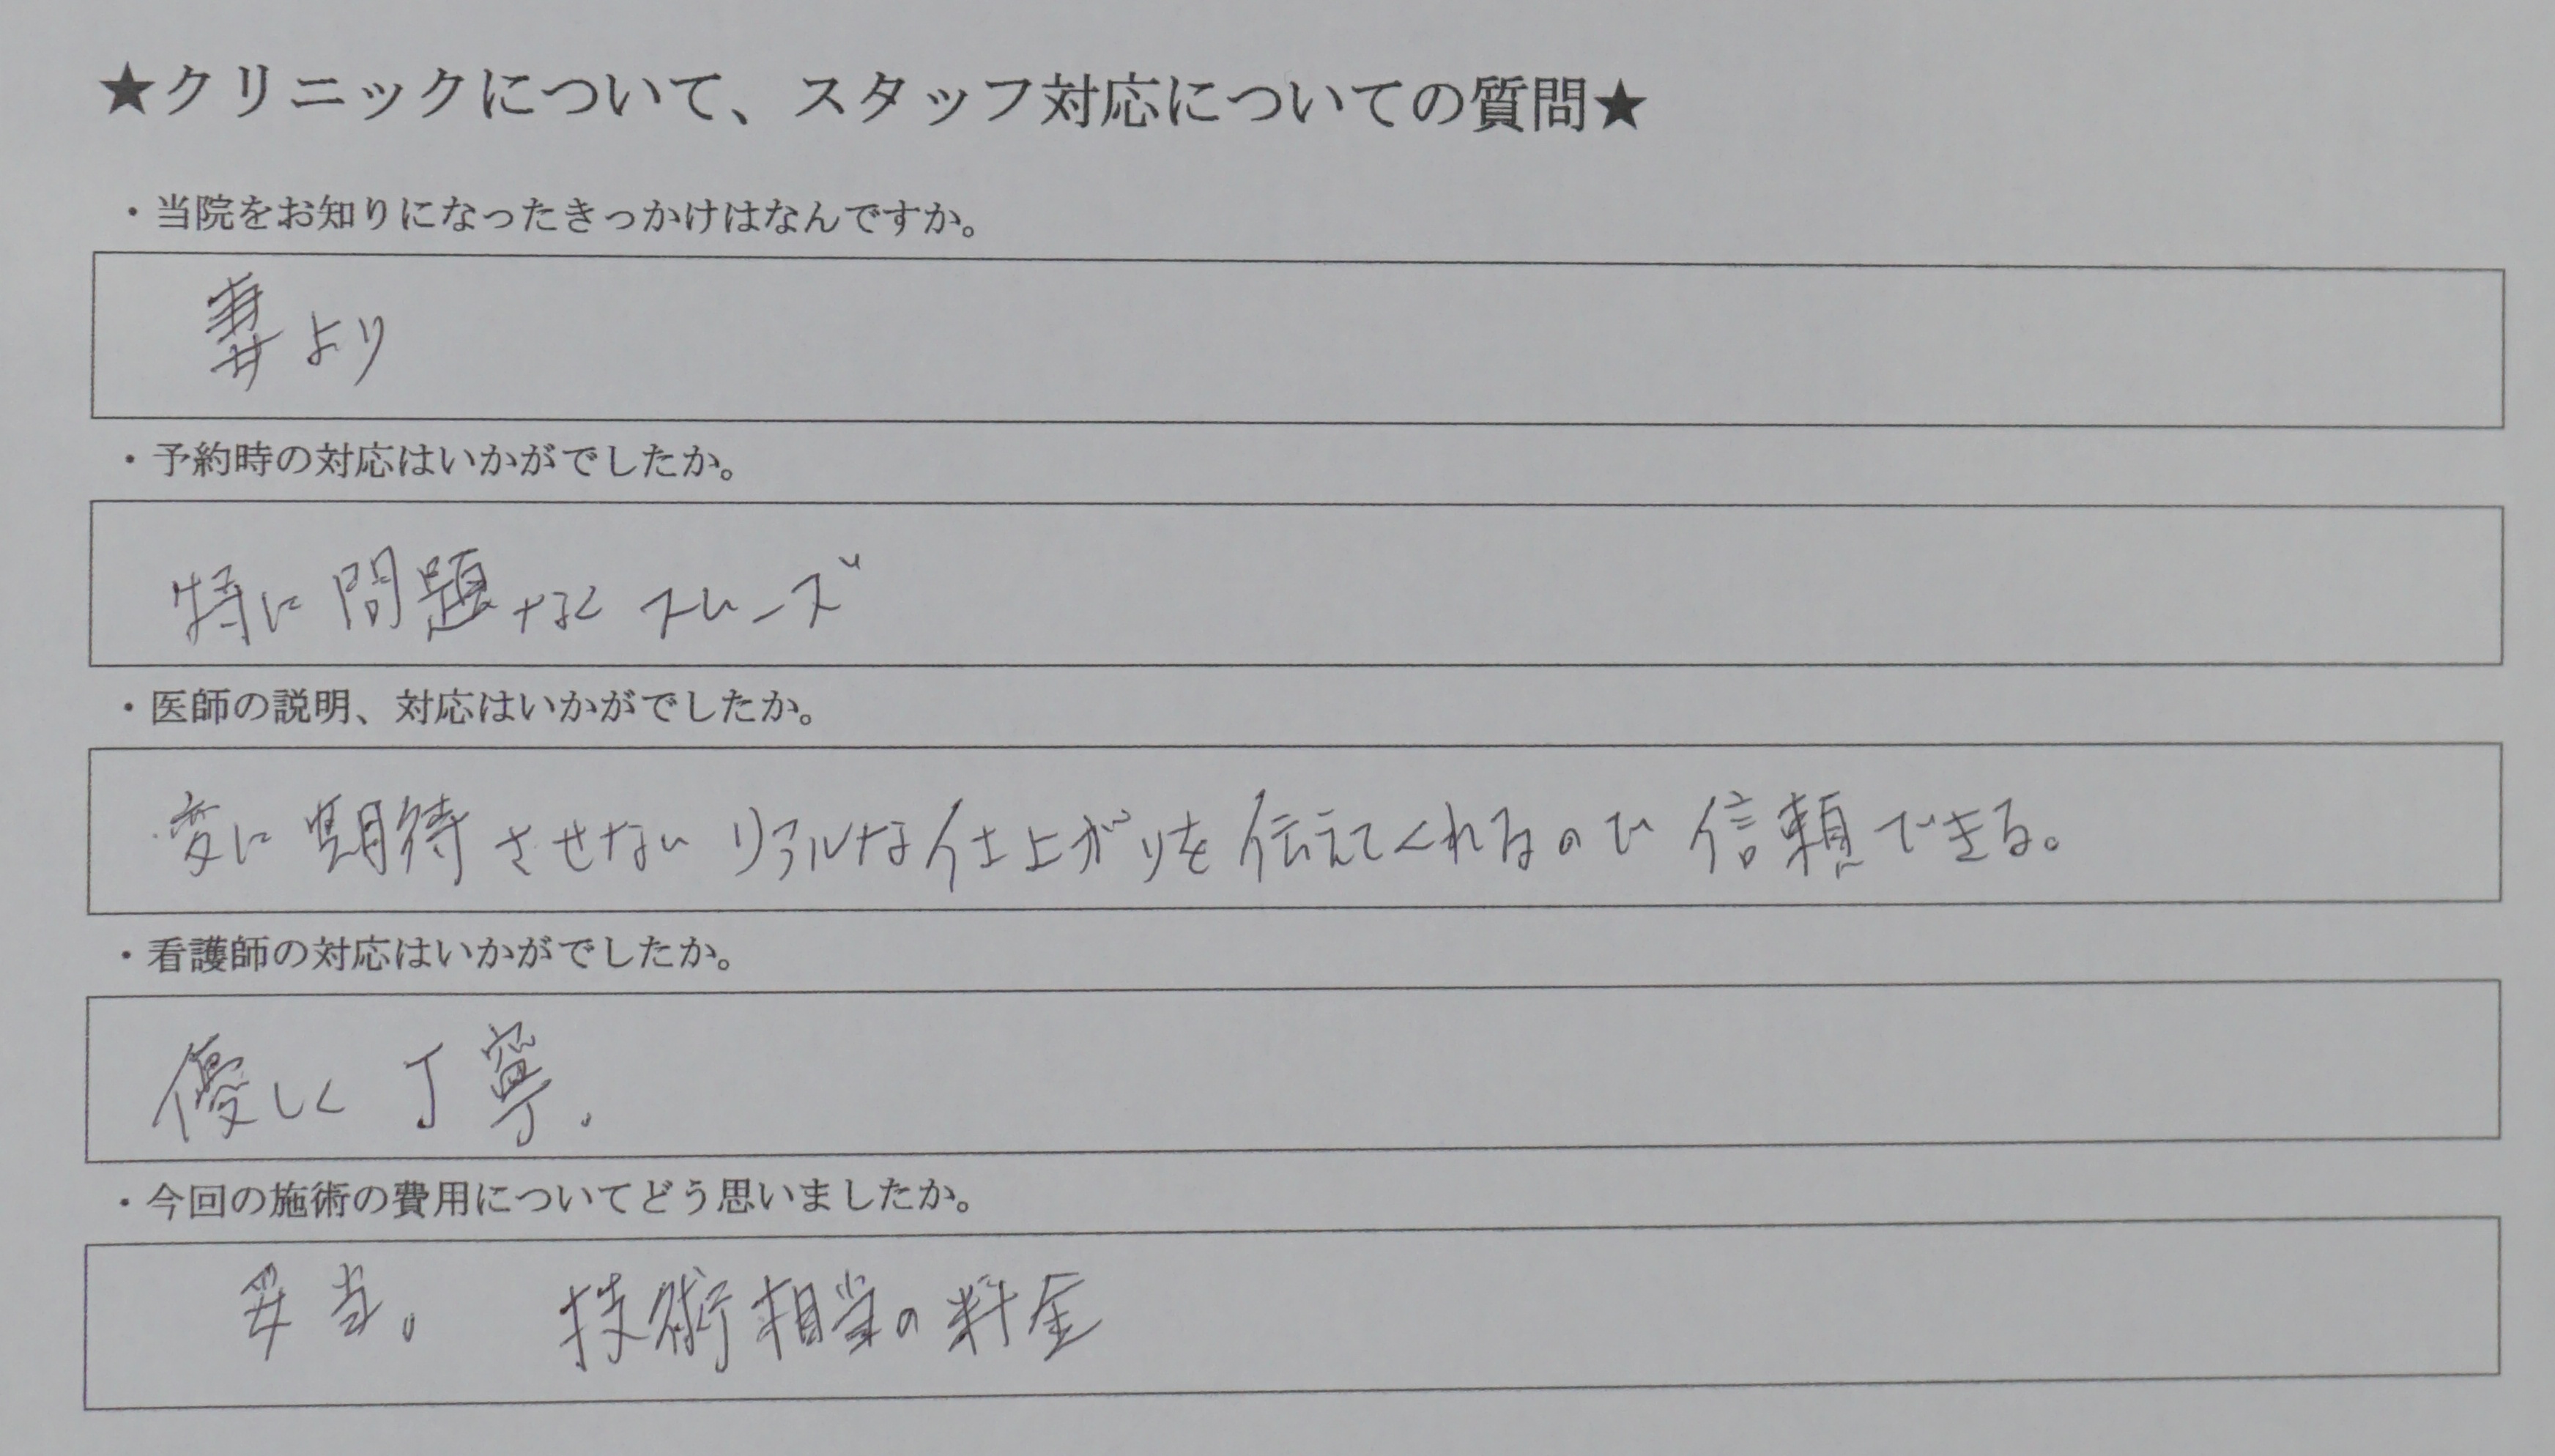 ★クリニックについて、スタッフ対応についての質問★
・当院をお知りになったきっかけはなんですか。
妻より
・予約時の対応はいかがでしたか。
特に問題なく スムーズ
・医師の説明、対応はいかがでしたか。
変に期待させないリアルな仕上がりを伝えてくれるので信頼できる。
・看護師の対応はいかがでしたか。
優しく丁寧。
・今回の施術の費用についてどう思いましたか。
妥当。 技術相当の料金